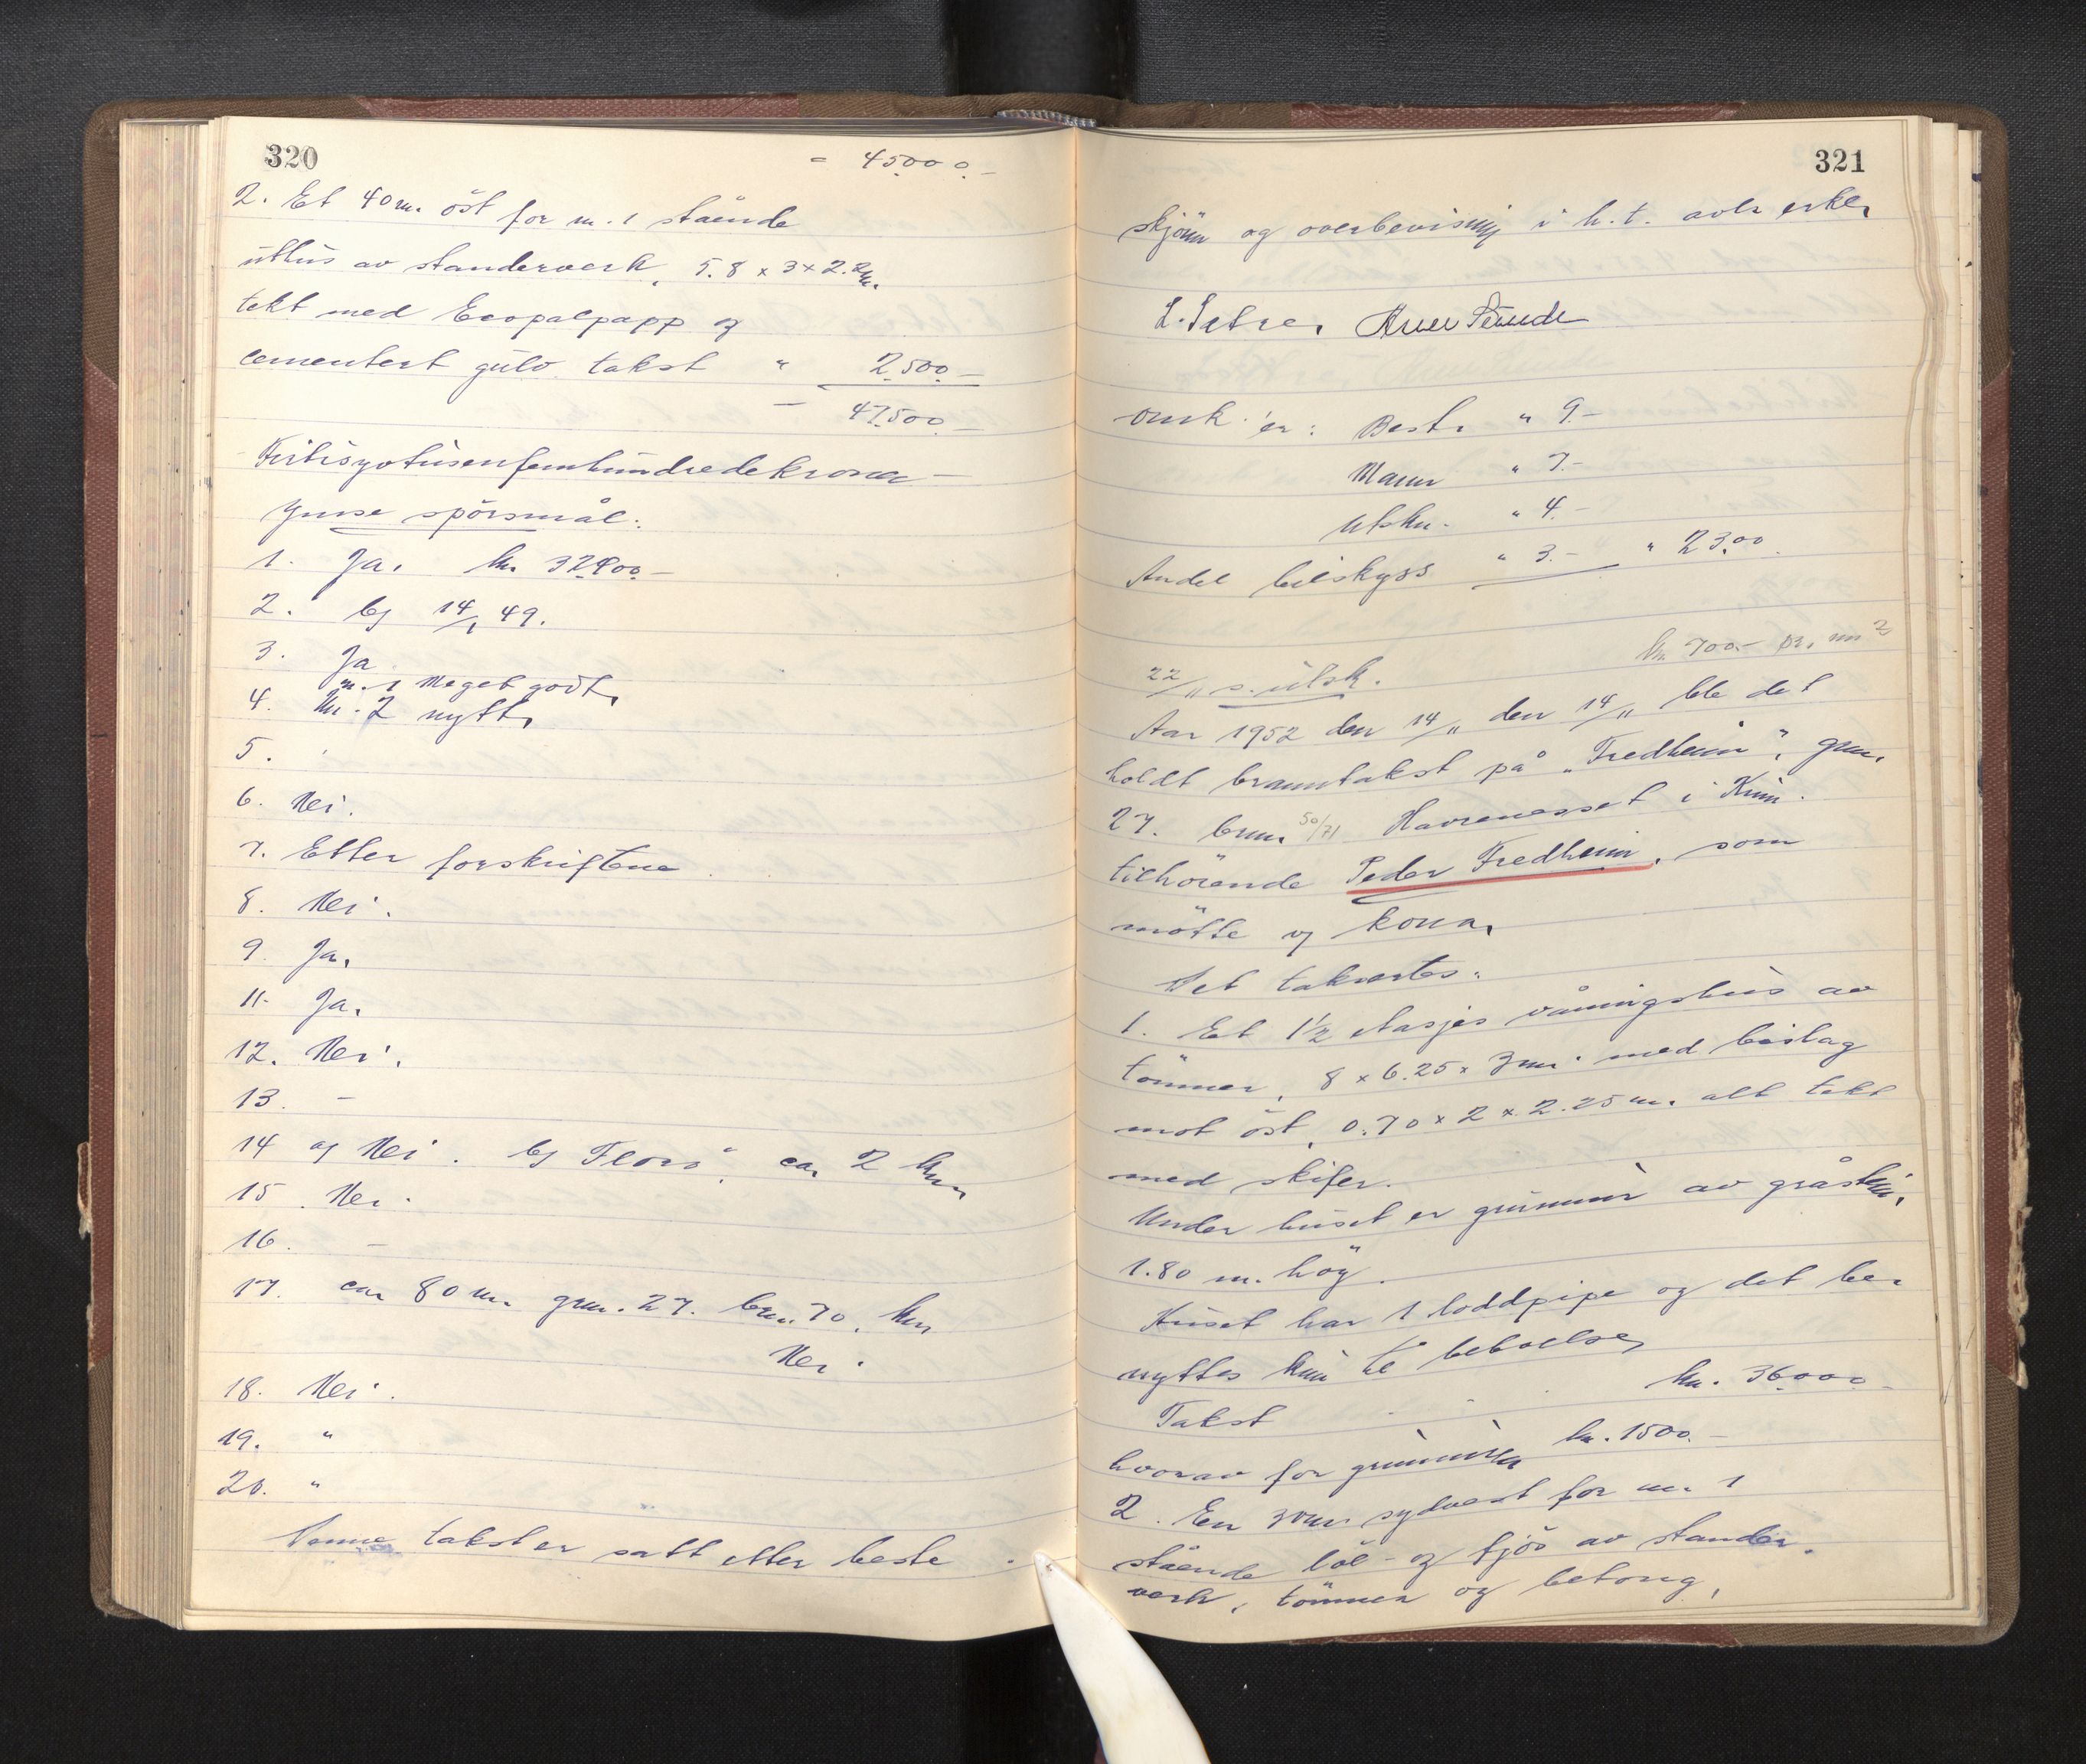 320
= 45000.-
2. Et 40 m. öst for nr. 1 stående
uthus av standerverk, 5.8 x 3 x 2.2 m.
tekt med Ecopalpapp og
cementert gulv takst " 2.500.-
— 47.500.-
Firtisyvtusenfemhundredekroner —
Ymse spörsmål:
1. Ja. kr. 32400.-
2. b) 14/1 49.
3. Ja
nr. 1 Meget godt,
4. Nr. 2 nytt,
5.
6. Nei.
7. Etter forskriftene
8. Nei.
9. Ja.
11. Ja.
12. Nei.
13. -
14 a) Nei. b) Florö, ca. 2 km
15. Nei.
16. -
17. ca 80 m. gnr. 27. bnr. 70,
Nei.
18. Nei.
19. "
20. "
Denne takst er satt etter beste
321
skjönn og overbevisning i h.t. avlr erkl.
L. Sætre,
omk.'er: Best. " 9.-
Mann " 7.-
Utskr. " 4.-
Andel bilskyss " 3.- " 23.00
22/11 s. utsk.
kr 700.- pr. m2
Aar 1952 den 14/11 den 14/11 ble det
holdt branntakst på "Fredheim", gnr.
27. bnr. 50/71 Havrenesset i Kinn.
tilhörende Peder Fredheim, som
mötte og kona,
Det takseres:
1. Et 1 1/2 etasjes våningshus av
tömmer, 8 x 6.25 x 3 m. med bislag
mot öst, 0.70 x 2 x 2.25 m. alt tekt
med skifer.
Under huset er grunnmur av gråstein,
1.80 m. höy.
Huset har 1 loddpipe og det be-
nyttes kun til beboelse,
Takst kr. 36000.-
hvorav for grunnmuren kr. 1500.-
2. En 30 m. sydvest for nr. 1
stående löe- og fjös av stander-
verk, tömmer og betong,